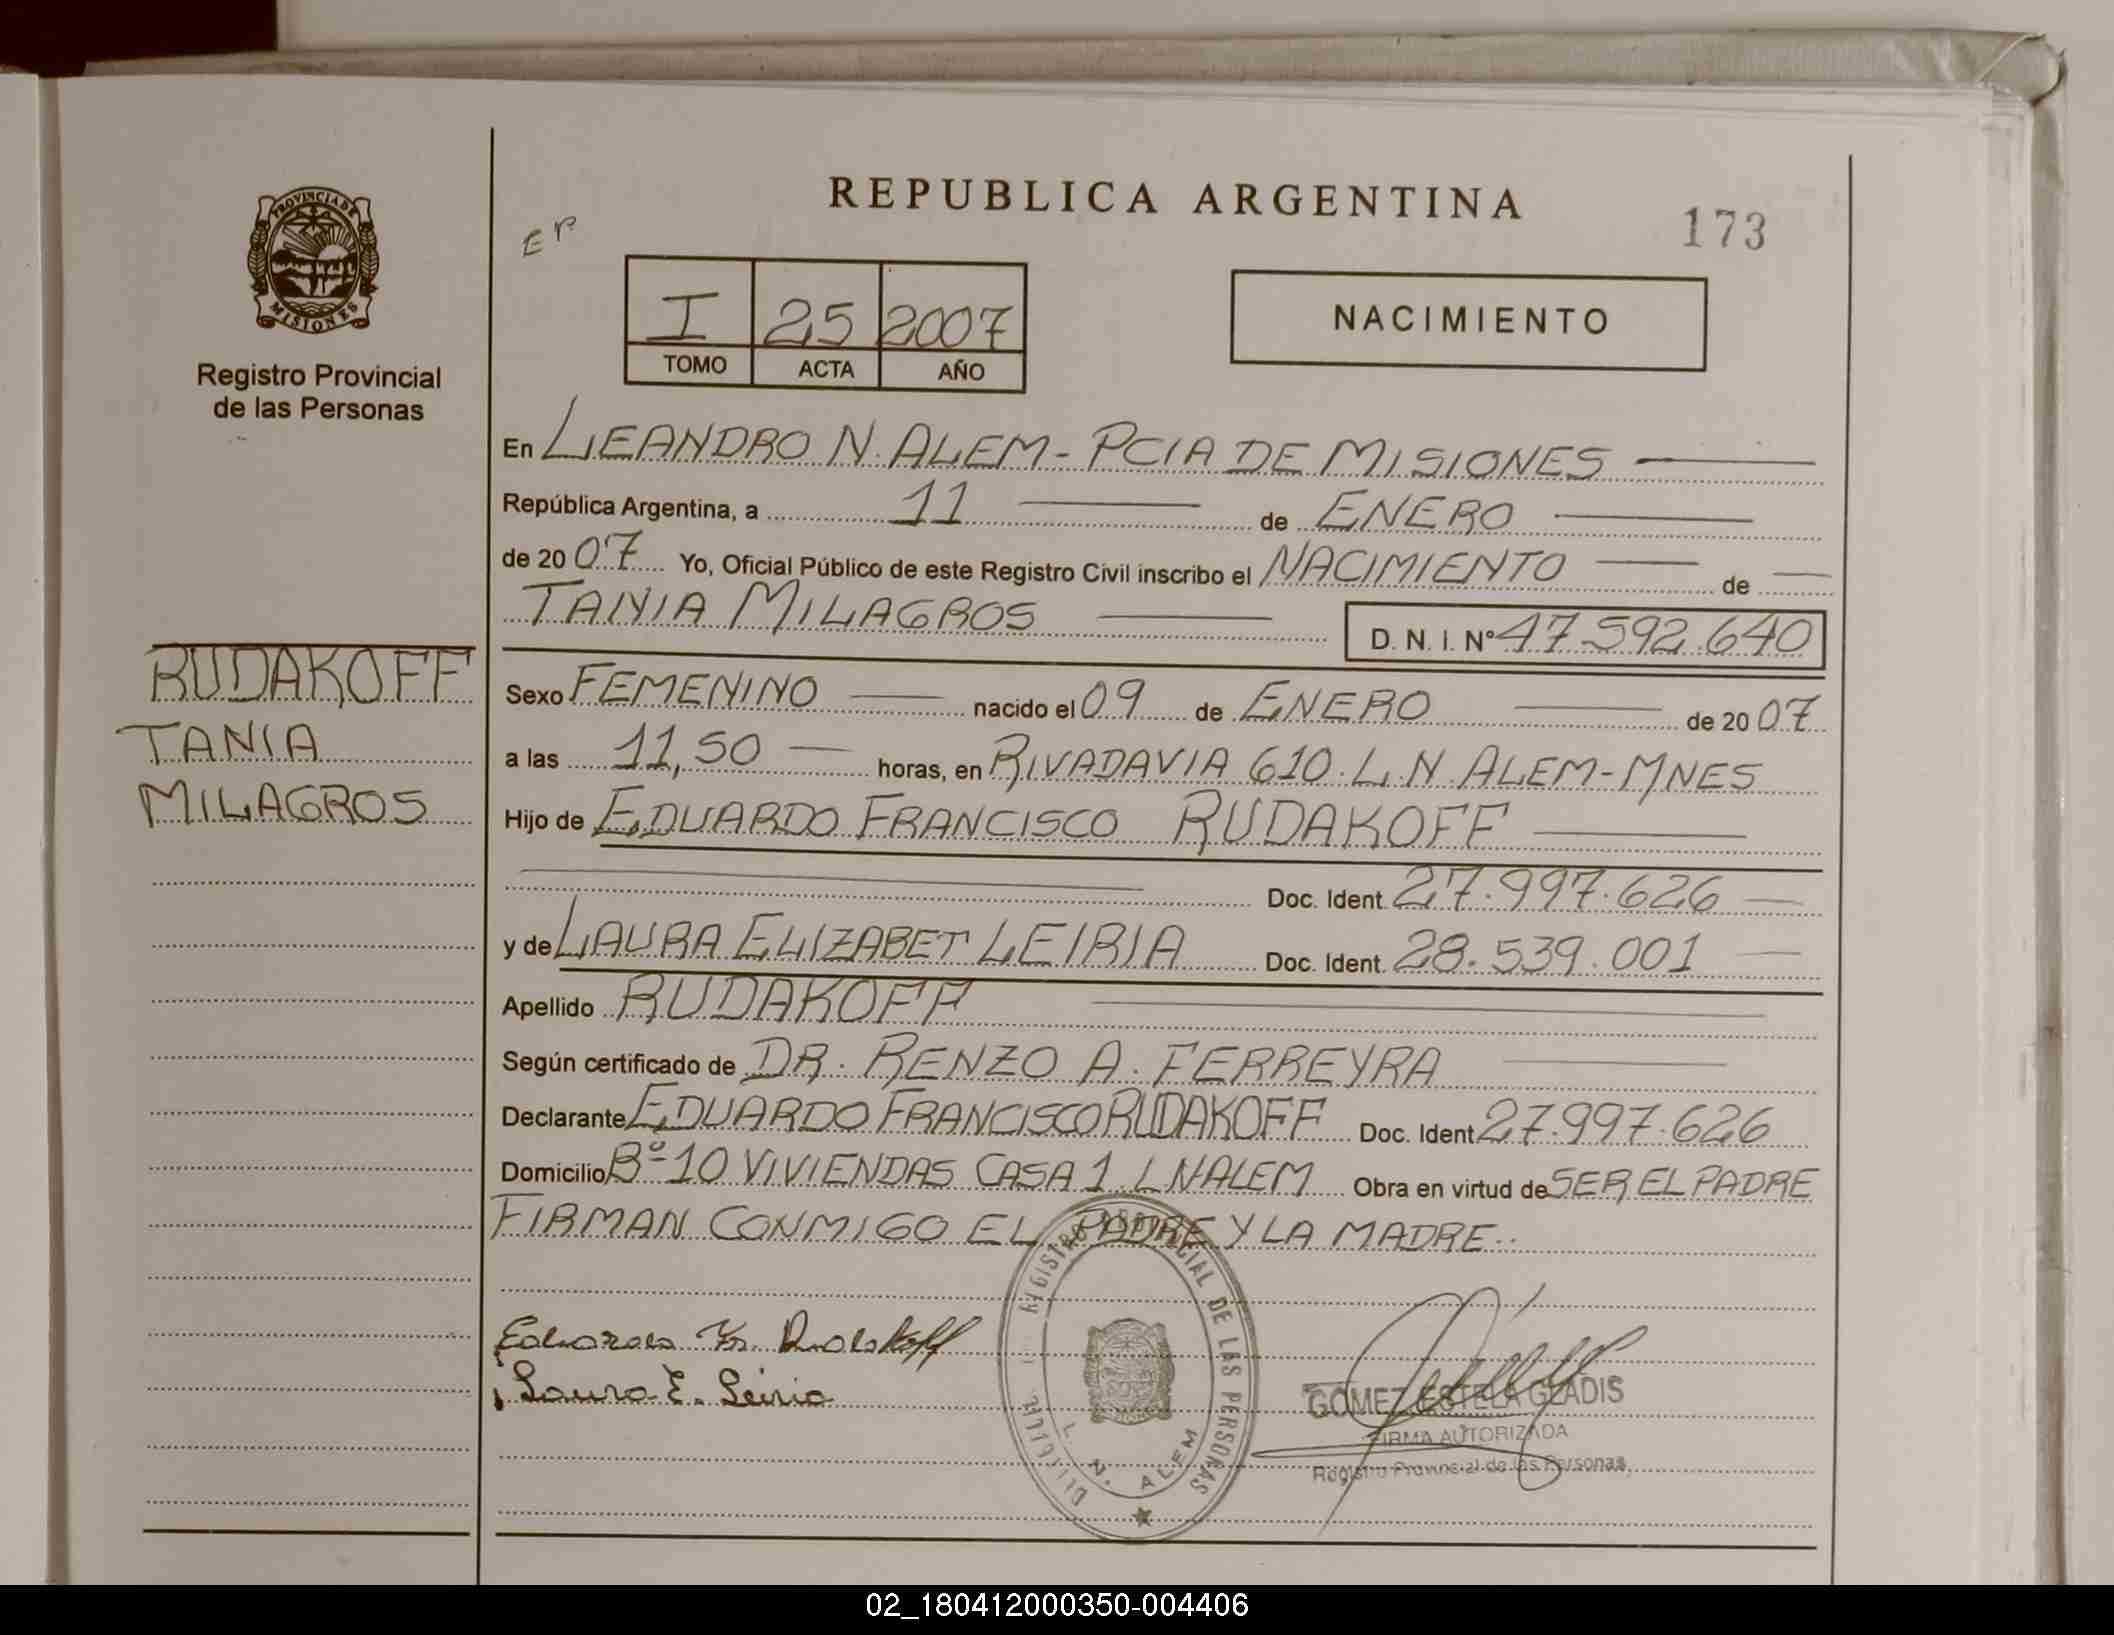 REPUBLICA ARGENTINA
173
EP
PROVINCIA DE
MISIONES
Registro Provincial
de las Personas
I 25 2007
TOMO ACTA AÑO
NACIMIENTO
En LEANDRO N. ALEM - PCIA DE MISIONES
República Argentina, a 11 de ENERO
de 20 07 Yo, Oficial Público de este Registro Civil inscribo el NACIMIENTO de
TANIA MILAGROS D. N. I. Nº 47.592.640
RUDAKOFF
TANIA
MILAGROS
Sexo FEMENINO nacido el 09 de ENERO de 20 07
a las 11,50 horas, en RIVADAVIA 610. L. N. ALEM - MNES
Hijo de EDUARDO FRANCISCO RUDAKOFF
Doc. Ident. 27.997.626
y de LAURA ELIZABET LEIRIA Doc. Ident. 28.539.001
Apellido RUDAKOFF
Según certificado de DR. RENZO A. FERREYRA
Declarante EDUARDO FRANCISCO RUDAKOFF Doc. Ident. 27.997.626
Domicilio Bº 10 VIVIENDAS CASA 1. L N ALEM Obra en virtud de SER EL PADRE
FIRMAN CONMIGO EL PADRE Y LA MADRE..
Eduardo Fr. Rudakoff
Laura E. Leiria
REGISTRO PROVINCIAL DE LAS PERSONAS
L. N. ALEM
GOMEZ ESTELA GLADIS
FIRMA AUTORIZADA
Registro Provincial de las Personas
02_180412000350-004406